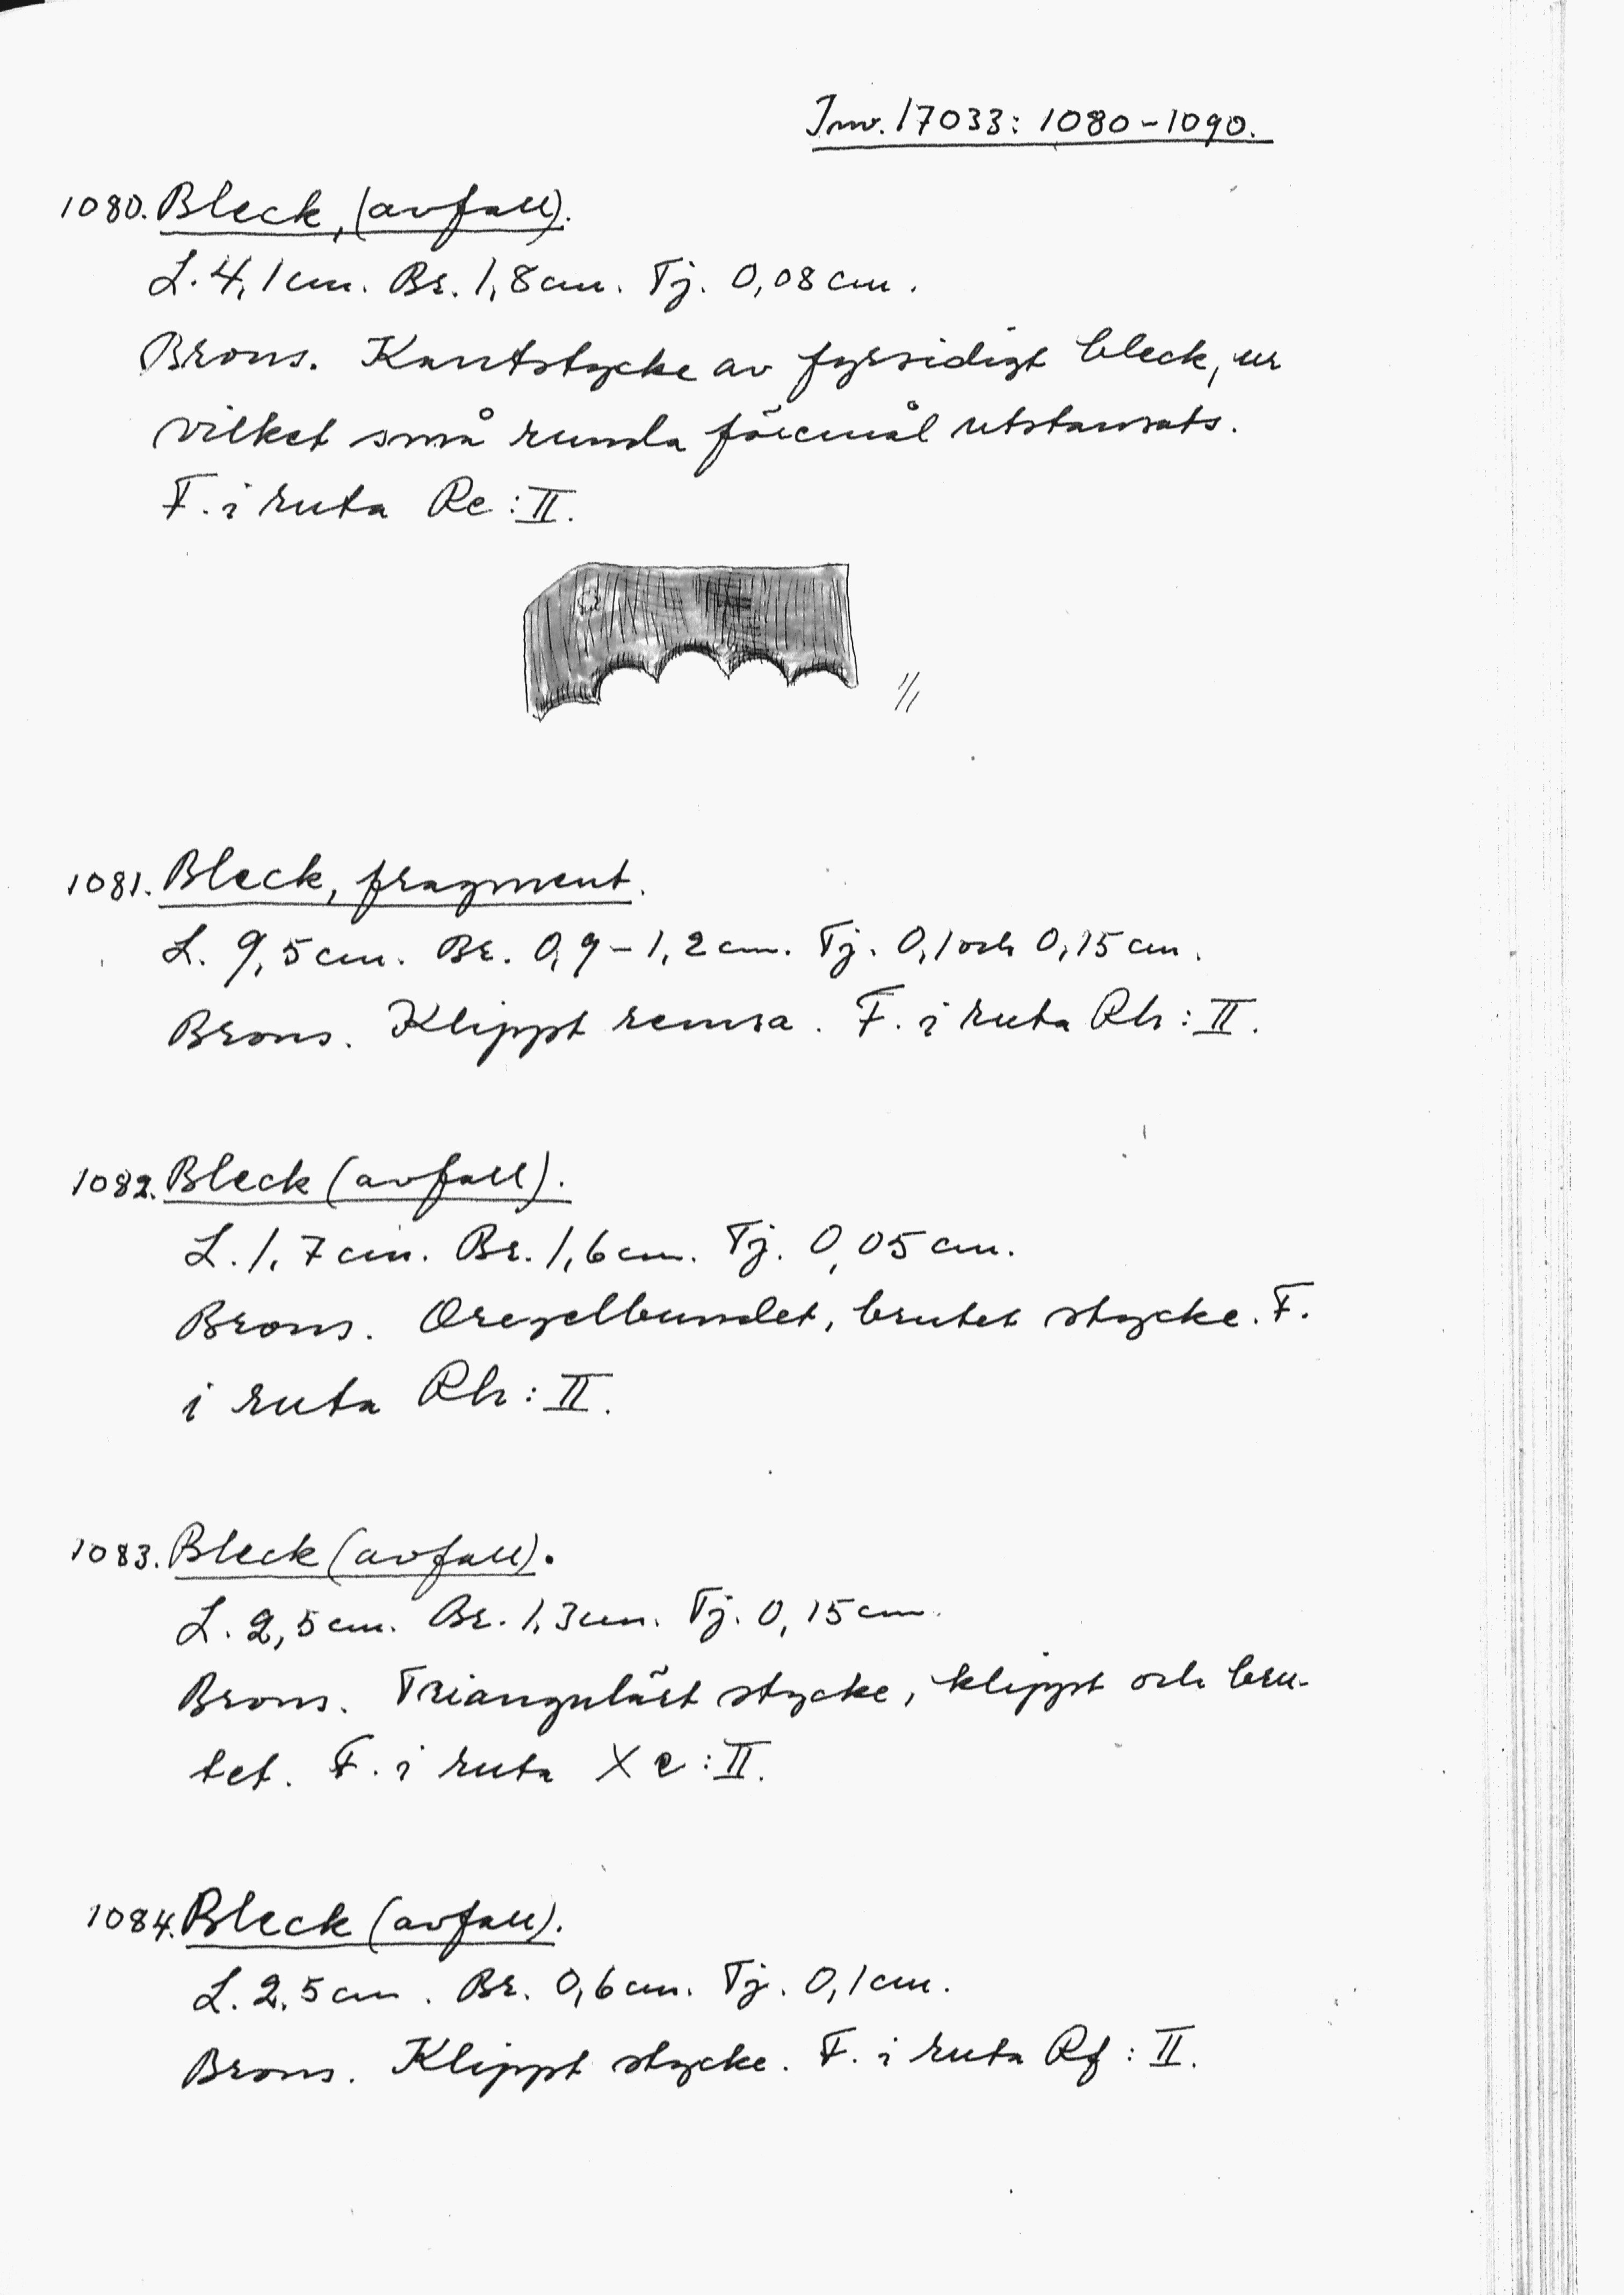 Inv. 17033: 1080-1090.
1080. Bleck, (avfall).
L. 4,1 cm. Br. 1,8 cm. Tj. 0,08 cm.
Brons. Kantstycke av fyrsidigt bleck, ur
vilket små runda föremål utstansats.
F. i ruta Re: II.
1/1
1081. Bleck, fragment.
L. 9,5 cm. Br. 0,9-1,2 cm. Tj. 0,1 och 0,15 cm.
Brons. Klippt remsa. F. i ruta Rh: II.
1082. Bleck (avfall).
L. 1,7 cm. Br. 1,6 cm. Tj. 0,05 cm.
Brons. Oregelbundet, brutet stycke. F.
i ruta Rh: II.
1083. Bleck (avfall).
L. 2,5 cm. Br. 1,3 cm. Tj. 0,15 cm.
Brons. Triangulärt stycke, klippt och bru-
tet. F. i ruta Xe: II.
1084. Bleck (avfall).
L. 2,5 cm. Br. 0,6 cm. Tj. 0,1 cm.
Brons. Klippt stycke. F. i ruta Rf: II.